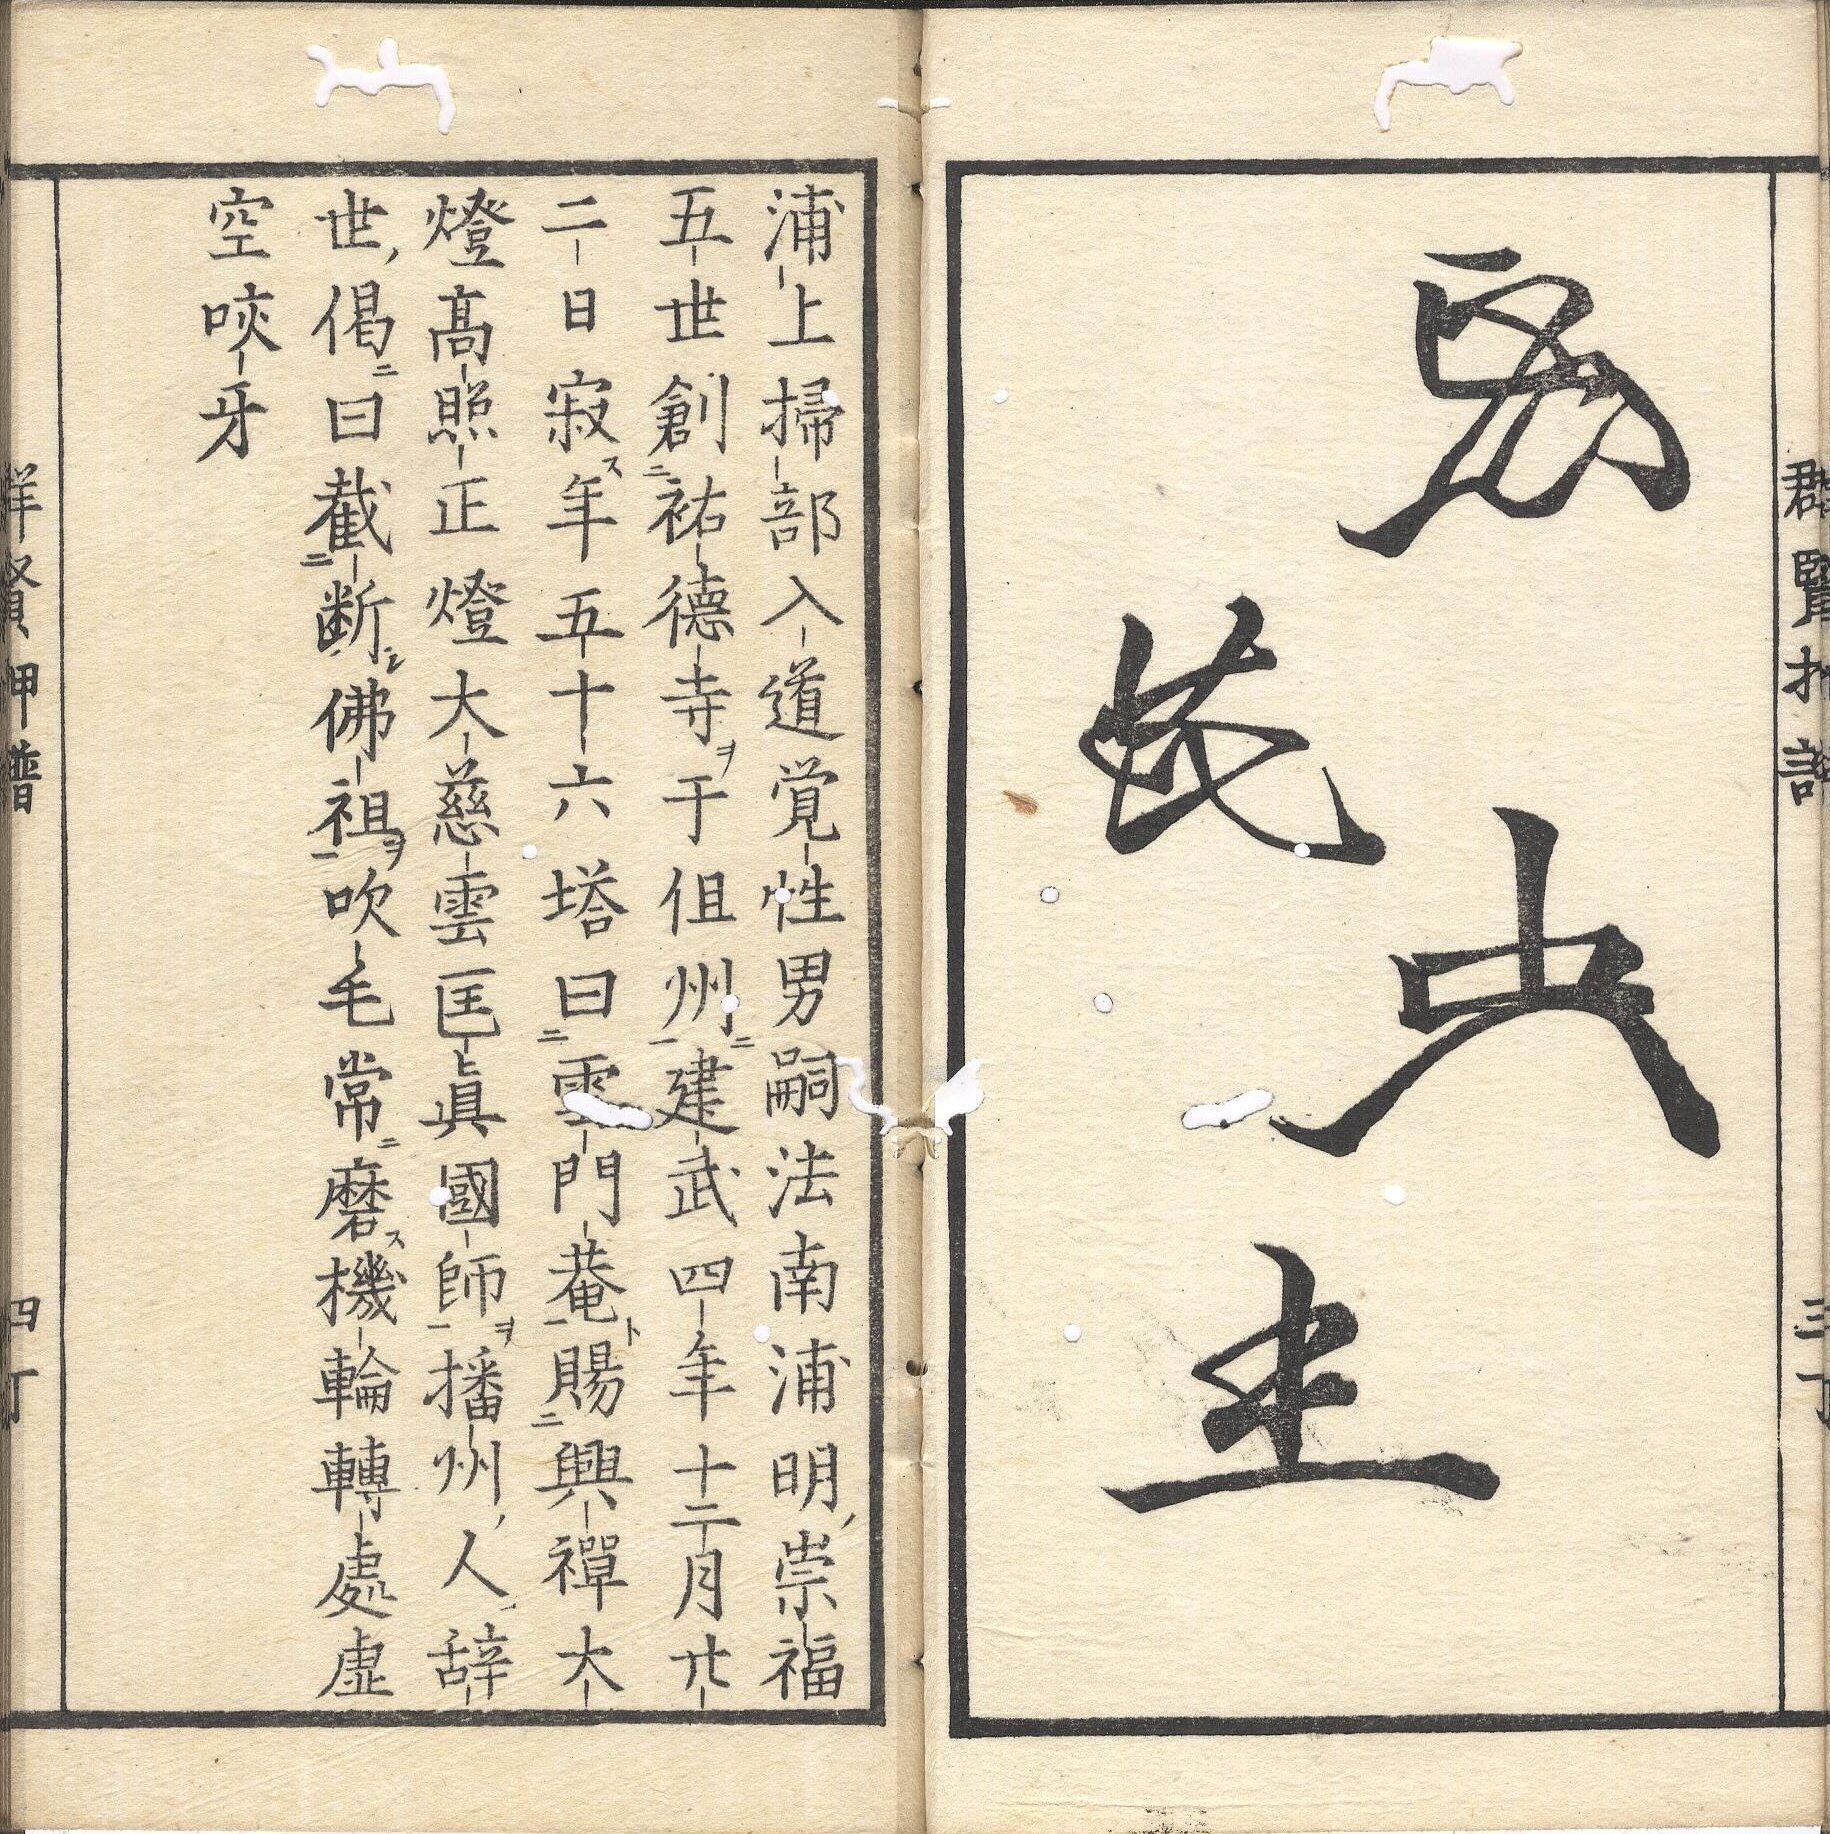 群賢押譜
三丁
浦上掃部入道覚性男嗣法南浦明崇福
五世創祐德寺ヲ于但州建武四年十二月廿
二日寂ス年五十六塔曰雲門菴ト賜興禪大
燈高照正燈大慈雲匡眞國師ヲ播州人辞
世偈曰截断佛祖ヲ吹毛常ニ磨ス機輪轉處虚
空咬牙
群賢押譜
四丁